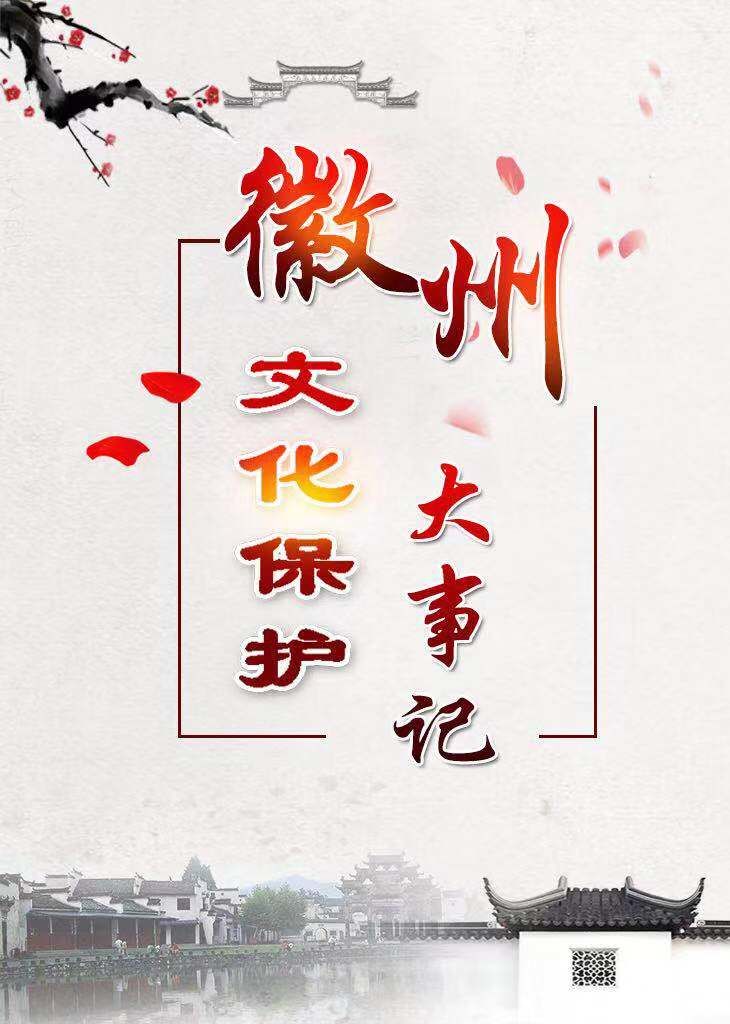 徽州
文化保护
大事记